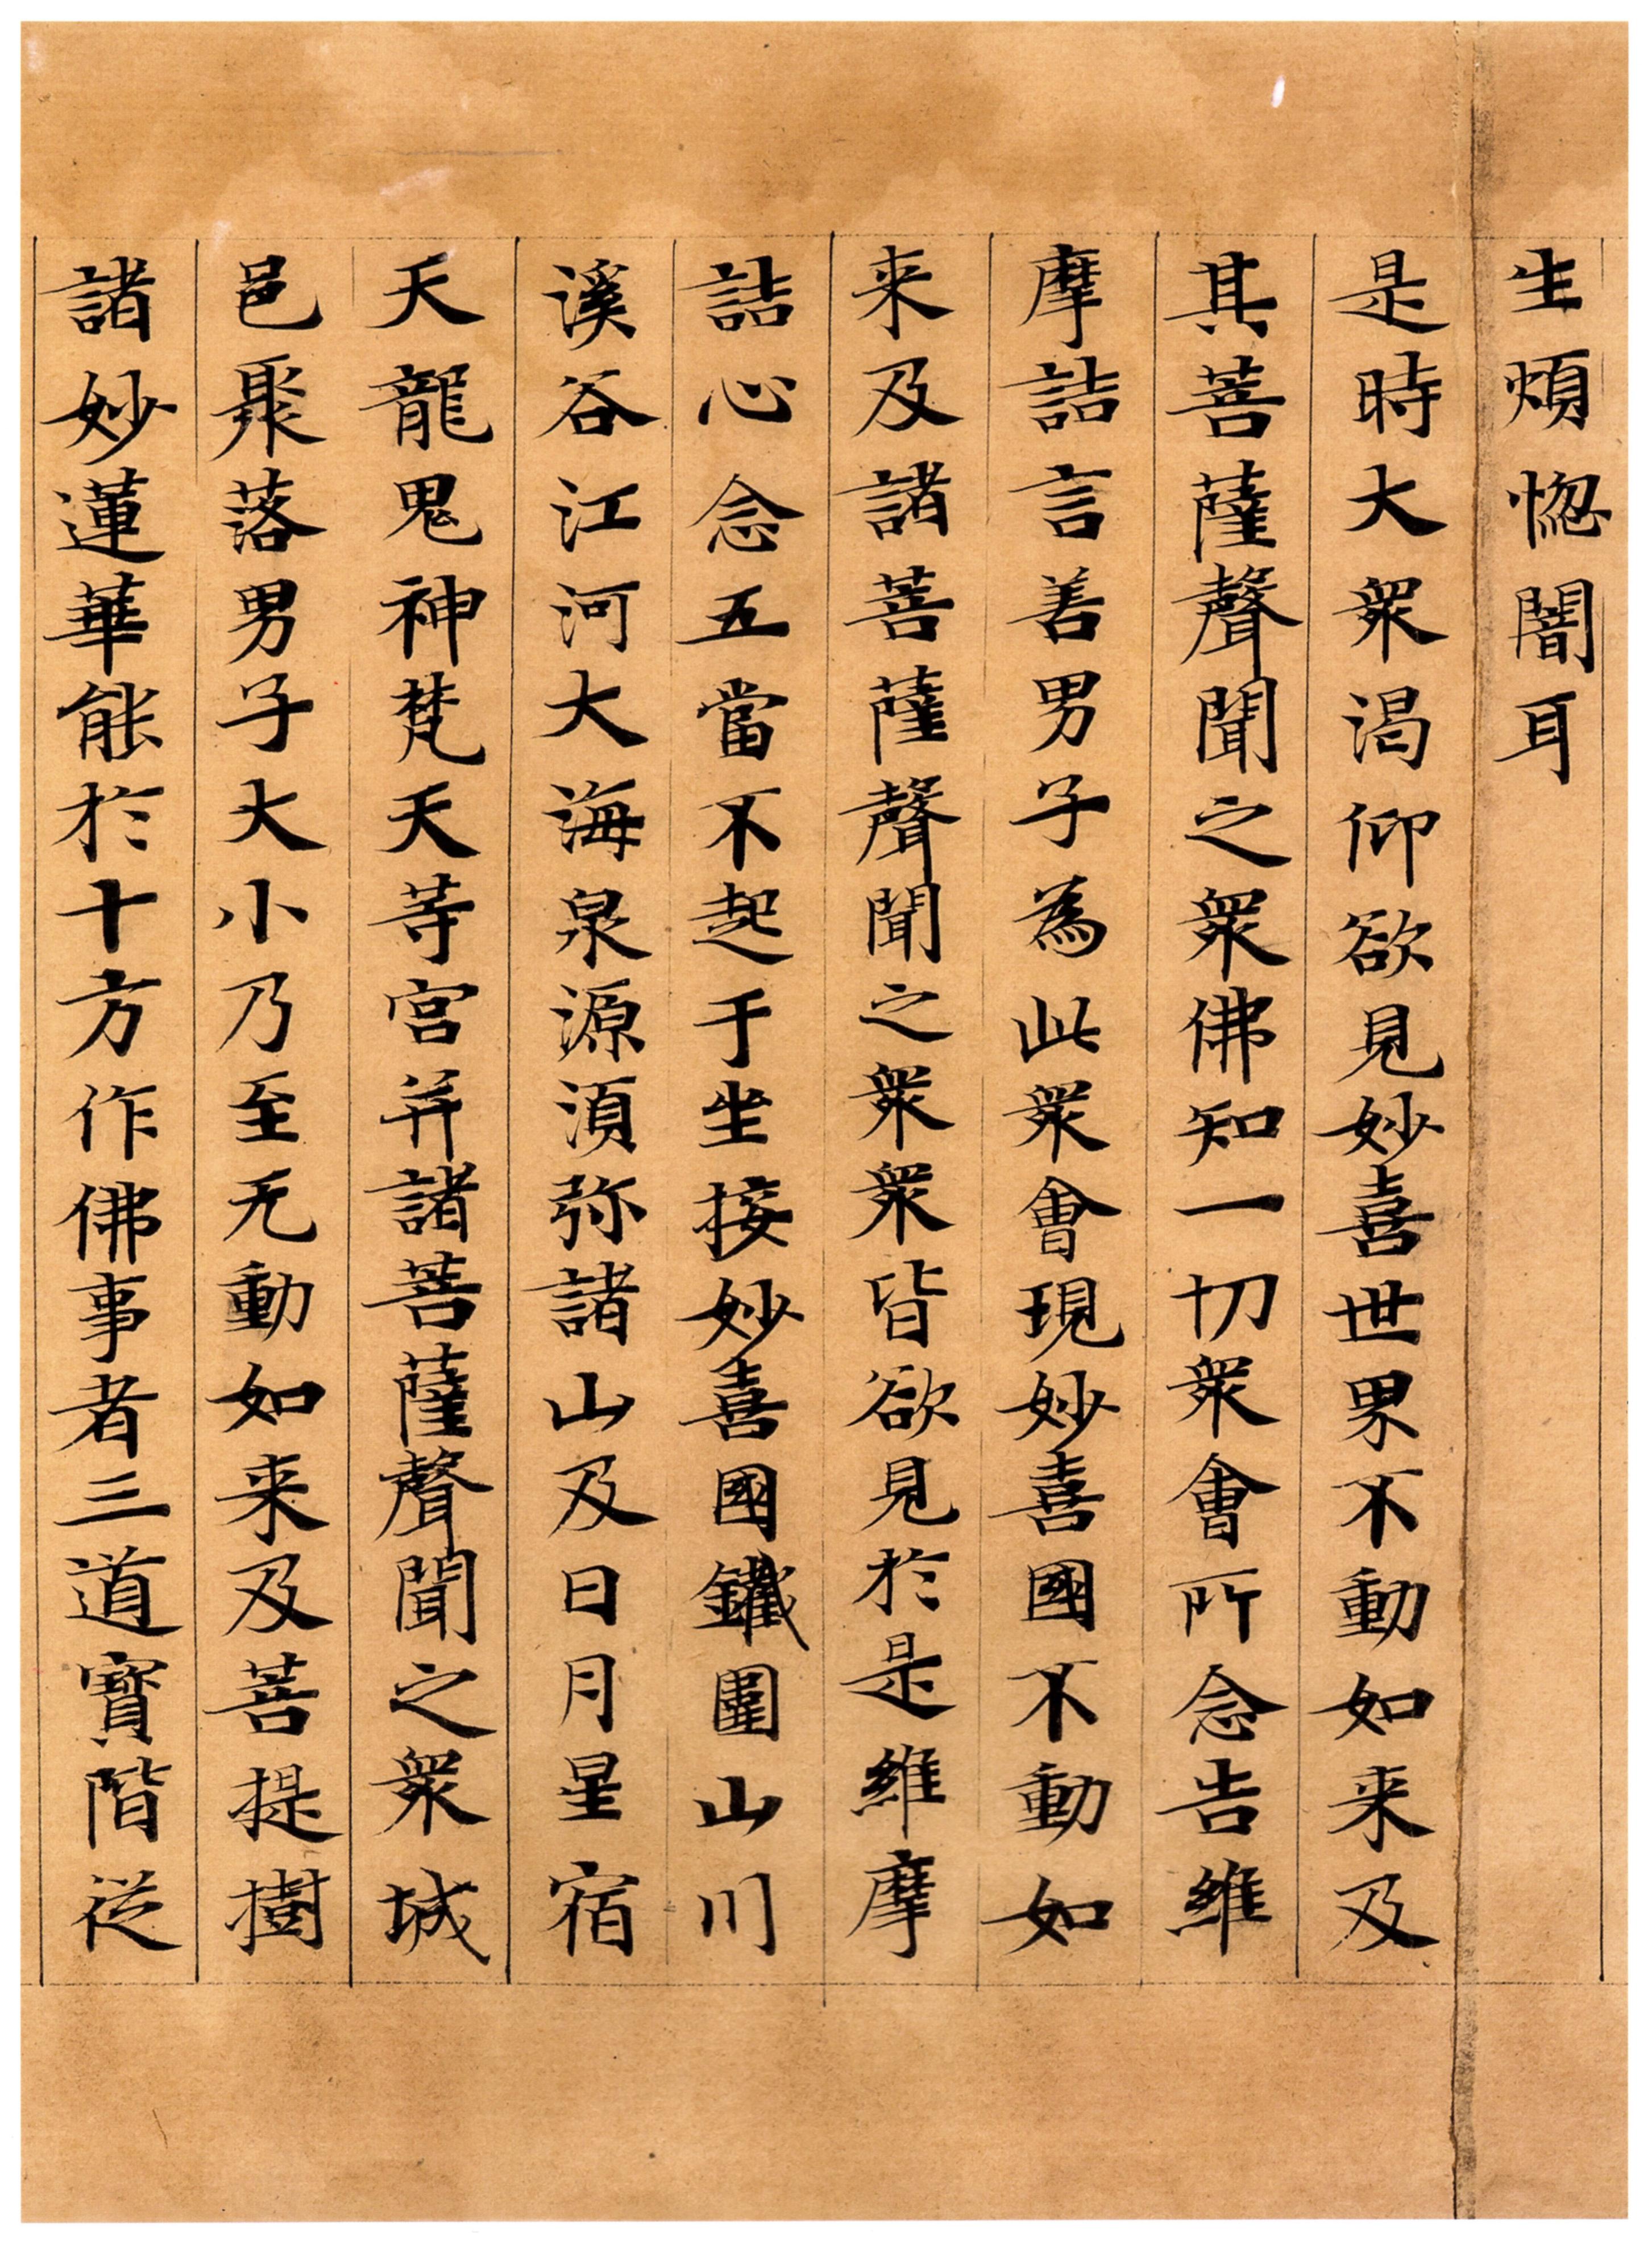 生煩惚闇耳
是時大衆渴仰欲見妙喜世界不動如来及
其菩薩聲聞之衆佛知一切衆會所念告維
摩詰言善男子為此衆會現妙喜國不動如
来及諸菩薩聲聞之衆衆皆欲見於是維摩
詰心念五當不起于坐接妙喜國鐵圍山川
溪谷江河大海泉源湏弥諸山及日月星宿
天龍鬼神梵天等宮并諸菩薩聲聞之衆城
邑聚落男子大小乃至无動如来及菩提樹
諸妙蓮華能於十方作佛事者三道寶階從